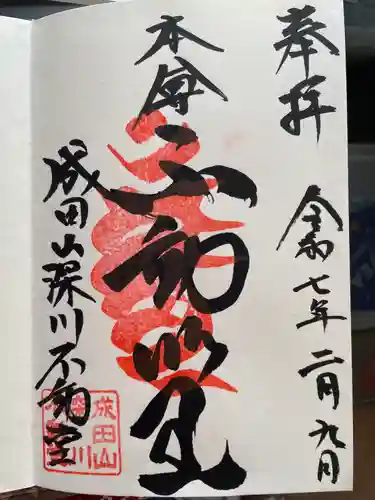 奉拝
令和七年二月九日
本尊
不動明王
成田山深川不動堂
成田山